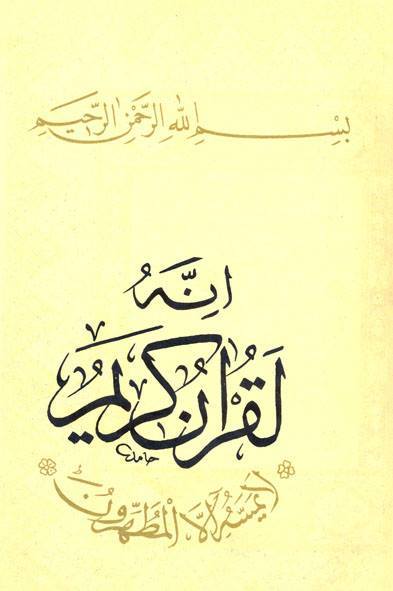 بِسْمِ اللهِ الرَّحْمٰنِ الرَّحِيمِ
اِنَّهُ
لَقُرْاٰنٌ كَرِيمٌ
حامد
لَا يَمَسُّهُ اِلَّا الْمُطَهَّرُونَ